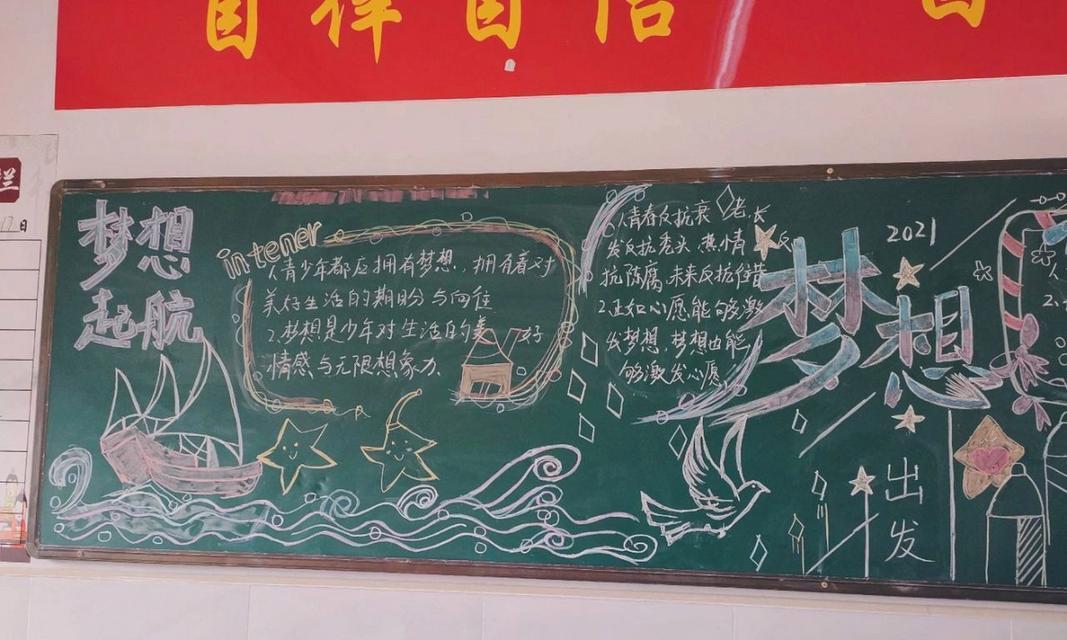 自律 自信 自
栏
17日
梦想
起航
intener
1.青少年都应拥有梦想,拥有着对
美好生活的期盼与向往
2.梦想是少年对生活的美好
情感与无限想象力.
1.青春反抗衰老,长
发反抗秃头,热情反
抗陈腐,未来反抗借措
2.正如心愿能够激
发梦想,梦想也能
够激发心愿
梦想
2021
出发
2.